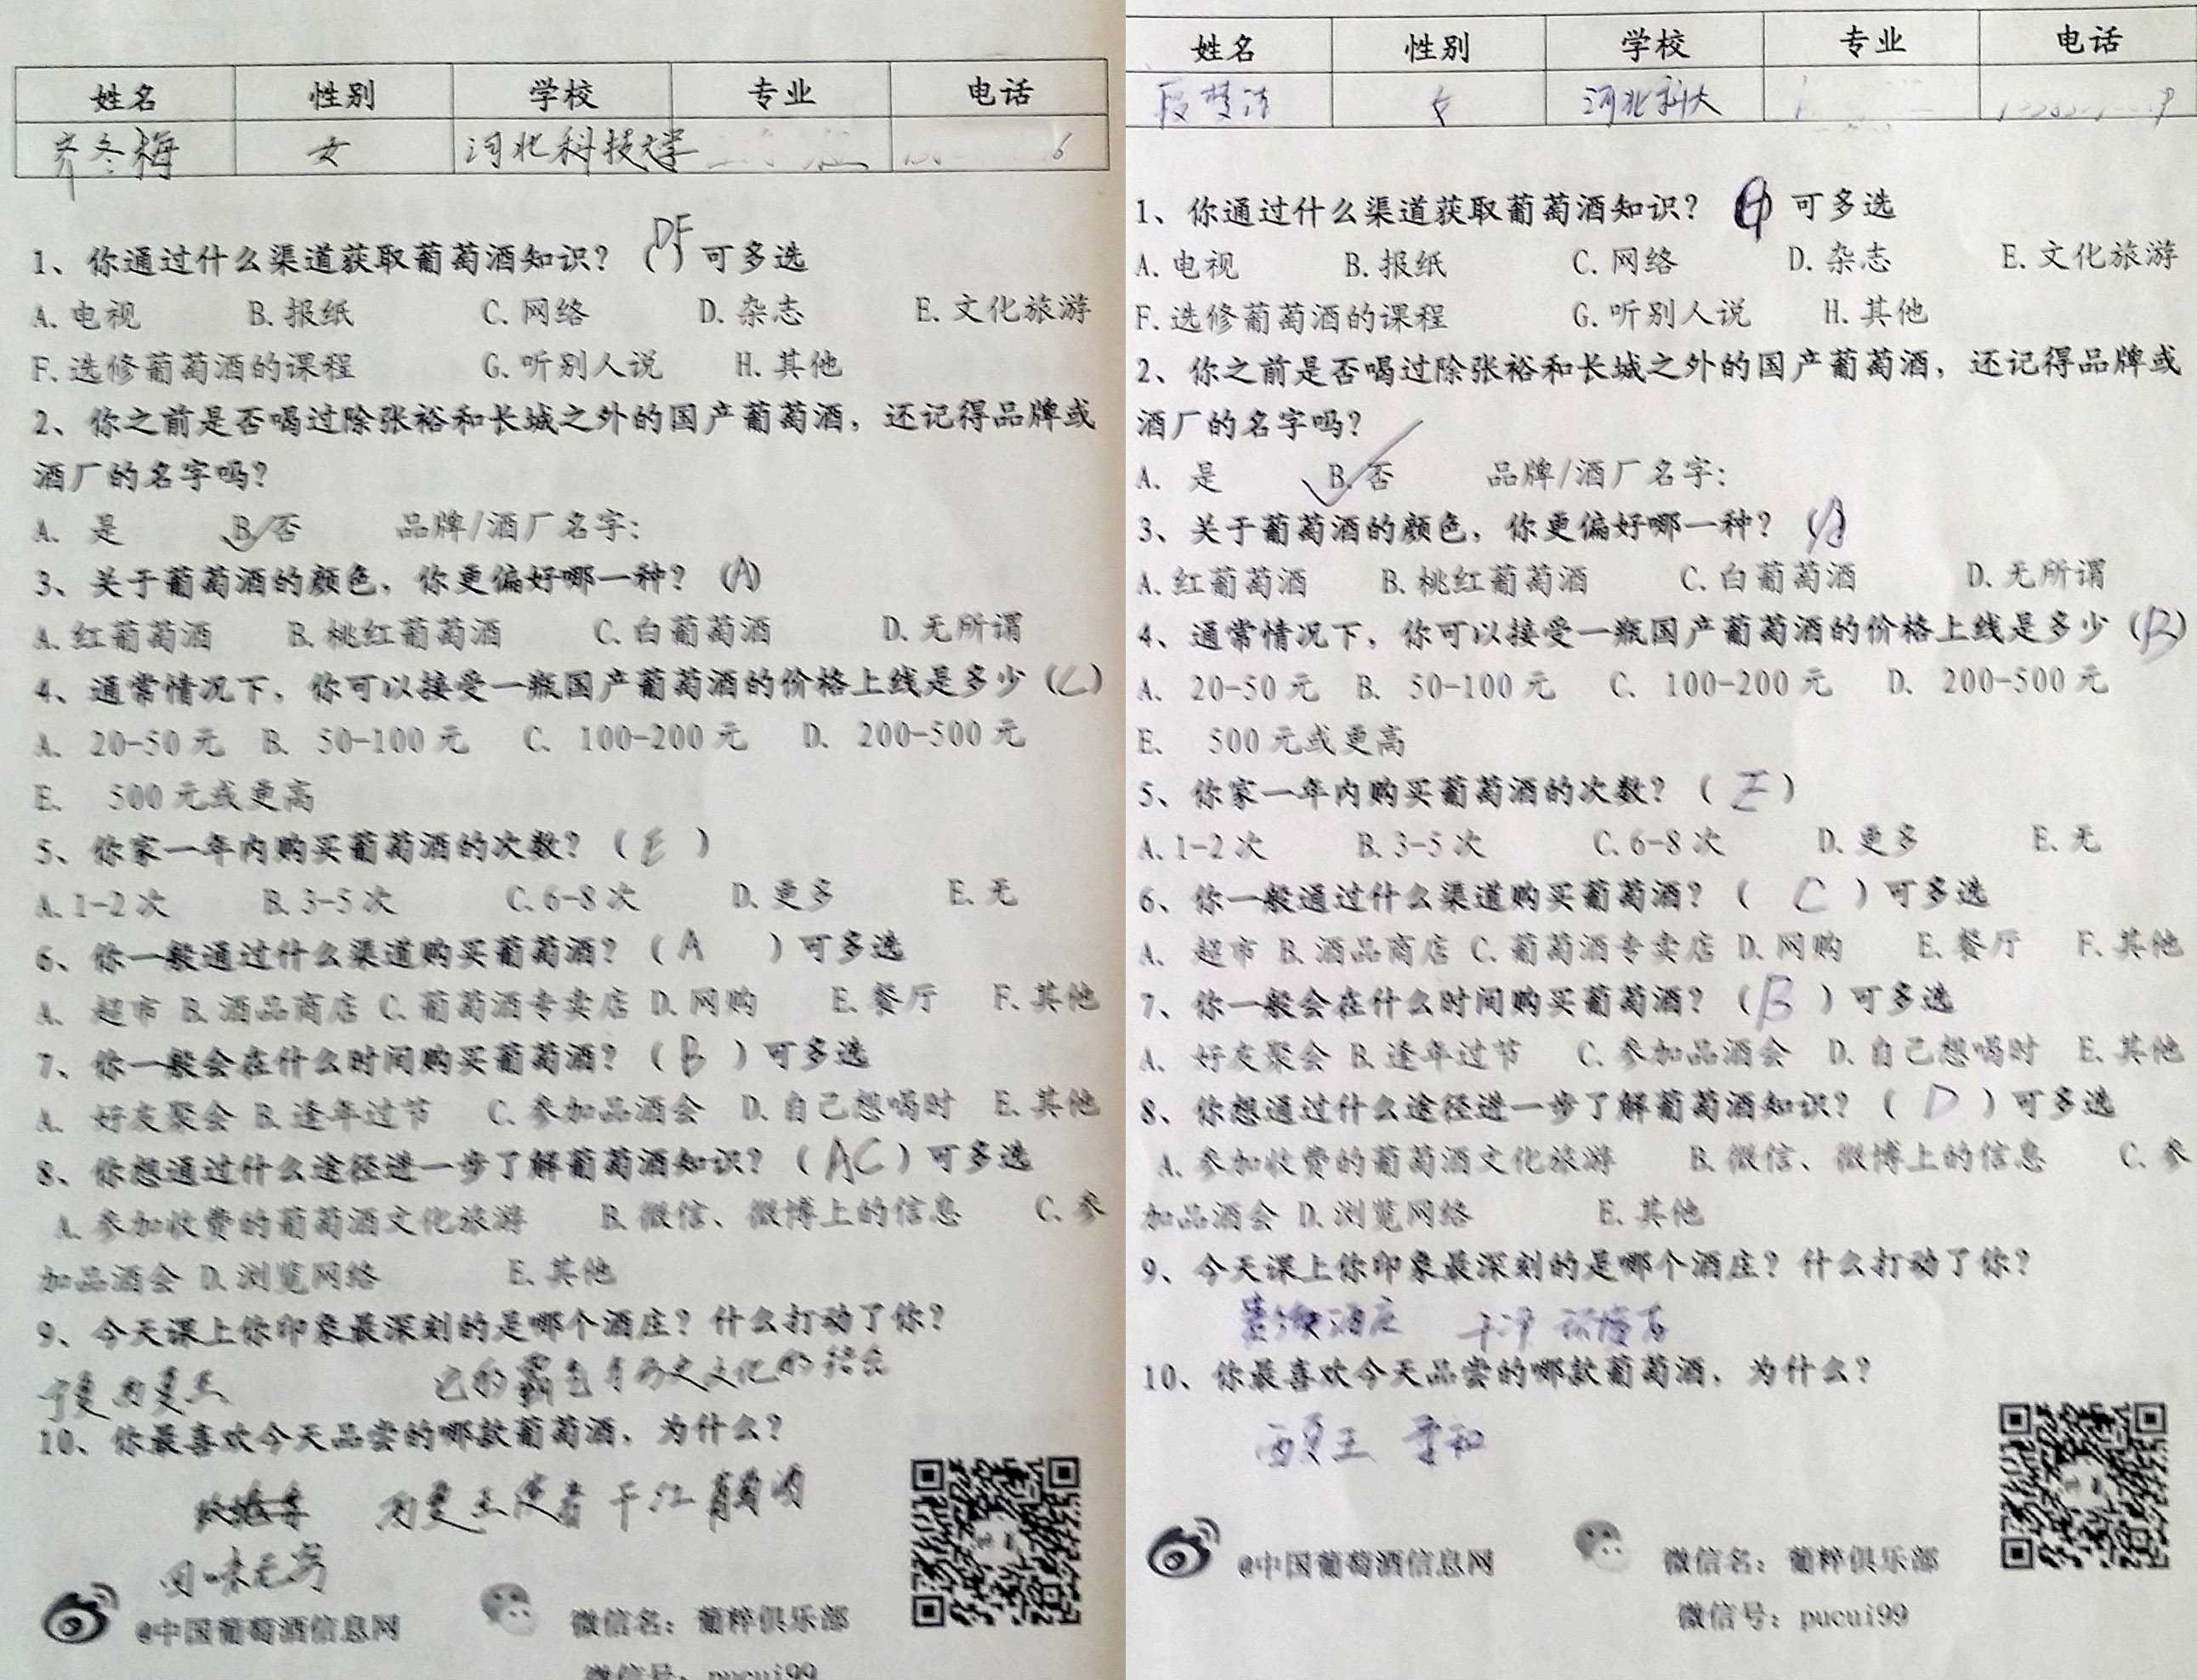 姓名 性别 学校 专业 电话
齐冬梅 女 河北科技大学
1、你通过什么渠道获取葡萄酒知识？（DF）可多选
A.电视 B.报纸 C.网络 D.杂志 E.文化旅游
F.选修葡萄酒的课程 G.听别人说 H.其他
2、你之前是否喝过除张裕和长城之外的国产葡萄酒，还记得品牌或
酒厂的名字吗？
A. 是 B.否 品牌/酒厂名字：
3、关于葡萄酒的颜色，你更偏好哪一种？（A）
A.红葡萄酒 B.桃红葡萄酒 C.白葡萄酒 D.无所谓
4、通常情况下，你可以接受一瓶国产葡萄酒的价格上线是多少（C）
A. 20-50元 B. 50-100元 C. 100-200元 D. 200-500元
E. 500元或更高
5、你家一年内购买葡萄酒的次数？（E）
A.1-2次 B.3-5次 C.6-8次 D.更多 E.无
6、你一般通过什么渠道购买葡萄酒？（A）可多选
A. 超市 B.酒品商店 C.葡萄酒专卖店 D.网购 E.餐厅 F.其他
7、你一般会在什么时间购买葡萄酒？（B）可多选
A. 好友聚会 B.逢年过节 C.参加品酒会 D.自己想喝时 E.其他
8、你想通过什么途径进一步了解葡萄酒知识？（AC）可多选
A.参加收费的葡萄酒文化旅游 B.微信、微博上的信息 C.参
加品酒会 D.浏览网络 E.其他
9、今天课上你印象最深刻的是哪个酒庄？什么打动了你？
宁夏西夏王 它的霸气与历史文化的结合
10、你最喜欢今天品尝的哪款葡萄酒，为什么？
西夏王使者干红葡萄酒
回味无穷
@中国葡萄酒信息网 微信名：葡粹俱乐部
微信号：pucui99
姓名 性别 学校 专业 电话
段梦洁 女 河北科大
1、你通过什么渠道获取葡萄酒知识？ 可多选
A.电视 B.报纸 C.网络 D.杂志 E.文化旅游
F.选修葡萄酒的课程 G.听别人说 H.其他
2、你之前是否喝过除张裕和长城之外的国产葡萄酒，还记得品牌或
酒厂的名字吗？
A. 是 B.否 品牌/酒厂名字：
3、关于葡萄酒的颜色，你更偏好哪一种？
A.红葡萄酒 B.桃红葡萄酒 C.白葡萄酒 D.无所谓
4、通常情况下，你可以接受一瓶国产葡萄酒的价格上线是多少（B）
A. 20-50元 B. 50-100元 C. 100-200元 D. 200-500元
E. 500元或更高
5、你家一年内购买葡萄酒的次数？（E）
A.1-2次 B.3-5次 C.6-8次 D.更多 E.无
6、你一般通过什么渠道购买葡萄酒？（C）可多选
A. 超市 B.酒品商店 C.葡萄酒专卖店 D.网购 E.餐厅 F.其他
7、你一般会在什么时间购买葡萄酒？（B）可多选
A. 好友聚会 B.逢年过节 C.参加品酒会 D.自己想喝时 E.其他
8、你想通过什么途径进一步了解葡萄酒知识？（D）可多选
A.参加收费的葡萄酒文化旅游 B.微信、微博上的信息 C.参
加品酒会 D.浏览网络 E.其他
9、今天课上你印象最深刻的是哪个酒庄？什么打动了你？
酒庄 干净
10、你最喜欢今天品尝的哪款葡萄酒，为什么？
西夏王 柔和
@中国葡萄酒信息网 微信名：葡粹俱乐部
微信号：pucui99